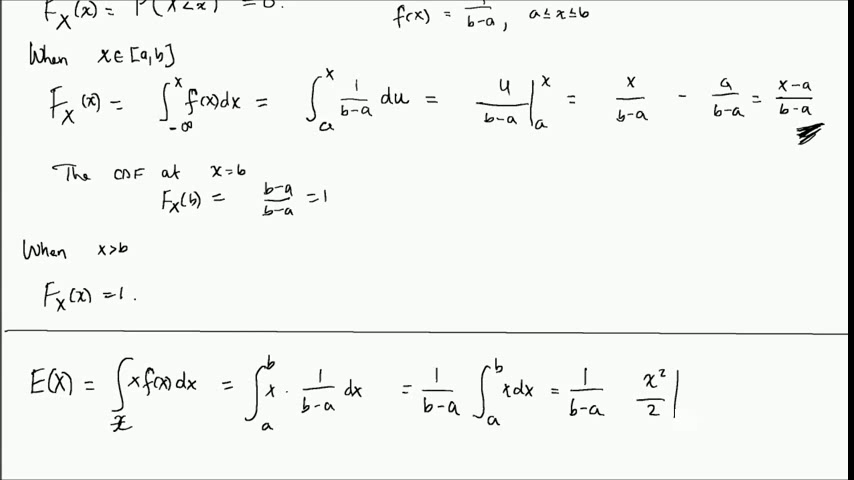 F_X(x) = P(X<x) = 0. f(x) = 1/(b-a), a≤x≤b
When x∈[a,b]
F_X(x) = ∫_{-∞}^{x} f(x)dx = ∫_{a}^{x} 1/(b-a) du = u/(b-a) |_{a}^{x} = x/(b-a) - a/(b-a) = (x-a)/(b-a)
The CDF at x=b
F_X(b) = (b-a)/(b-a) = 1
When x>b
F_X(x) = 1.
E(X) = ∫_{x} x f(x) dx = ∫_{a}^{b} x · 1/(b-a) dx = 1/(b-a) ∫_{a}^{b} x dx = 1/(b-a) x²/2 |